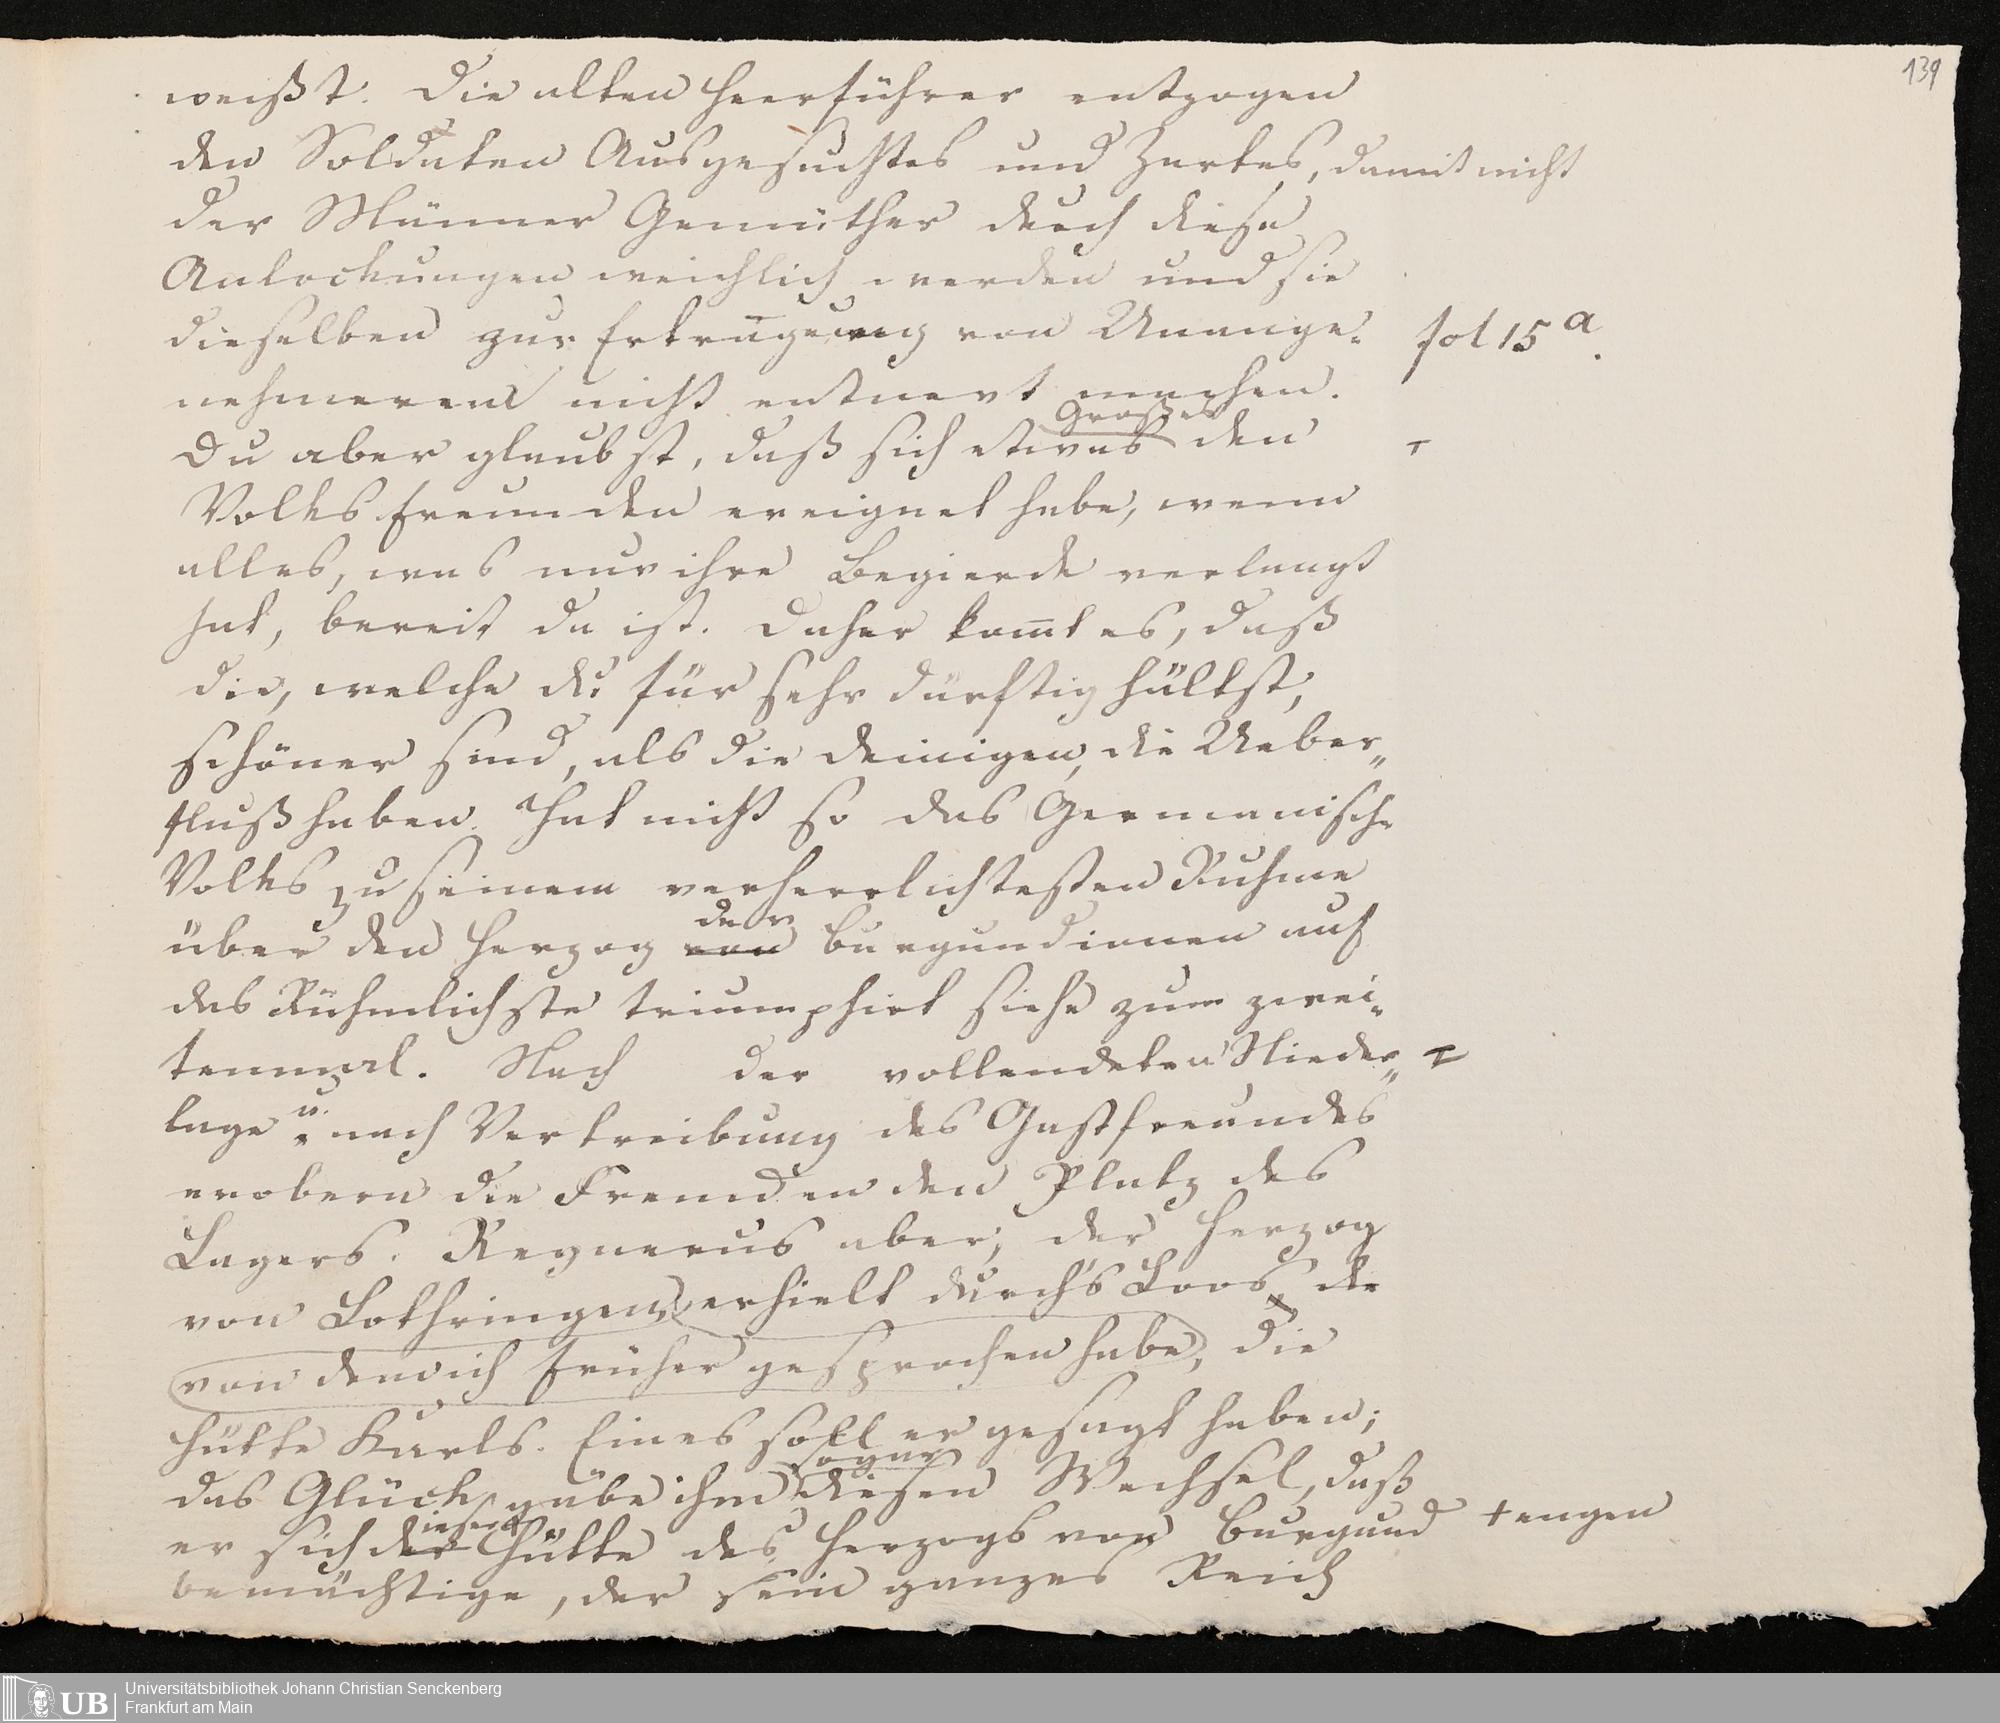 139
weißt. Die alten Heerführer entzogen
den Soldaten Ausgesuchtes und Zartes, damit nicht
der Männer Gemüther durch diese
Anlockungen weichlich werden und sie
dieselben zur Ertragung von Unange-
fol 15 a.
nehmerem nicht entnervt machen.
Großes
Du aber glaubst, daß sich etwas den
Volksfreunden ereignet habe, wenn
alles, was nur ihre Begierde verlangt
hat, bereit da ist. Daher komt es, daß
die, welche du für sehr dürftig hältst,
schöner sind, als die deinigen, die Ueber„
fluß haben. Hat nicht so das Germanische
Volks zu seinem verherrlichtesten Ruhme
der
über den Herzog von Burgundionen auf
das Rühmlichste triumphirt siehe zum zwei-
tenmal. Nach der vollendeten Nieder„
lage u. nach Vertreibung des Gastfreundes
erobern die Fremden den Platz des
Lagers. Regnerus aber, der Herzog
von Lothringen erhielt durch's Loos, die
von dem ich früher gesprochen habe, die
Hütte Karls. Eines soll er gesagt haben;
sogar
das Glück gäbe ihm diesen Wechsel, daß
ieser
er sich der Hütte des Herzogs von Burgund
+ engen
bemächtige, der sein ganzes Reich
UB
Universitätsbibliothek Johann Christian Senckenberg
Frankfurt am Main